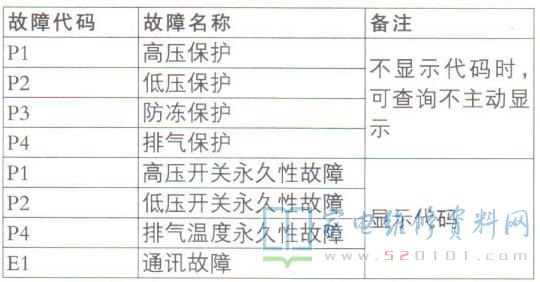 故障代码 故障名称 备注
P1 高压保护
P2 低压保护
P3 防冻保护
P4 排气保护
不显示代码时，
可查询不主动显
示
P1 高压开关永久性故障
P2 低压开关永久性故障
P4 排气温度永久性故障
E1 通讯故障
显示代码
家电维修资料网
www.520101.com